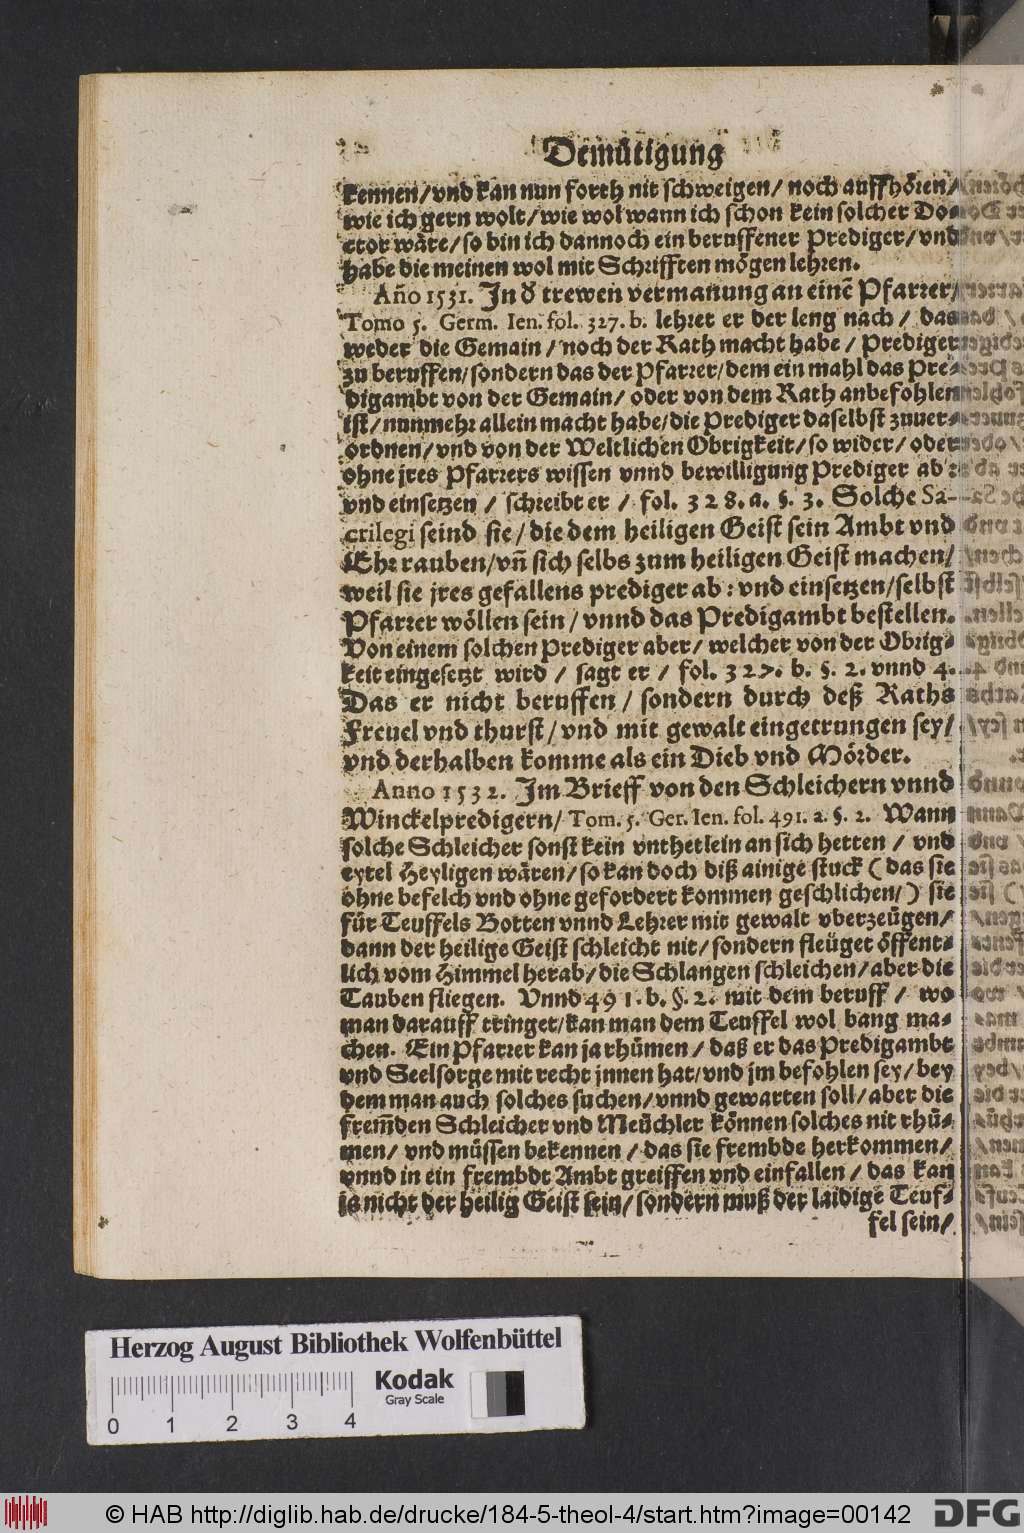 Demütigung
kennen/vnd kan nun forth nit schweigen/ noch auffhören/
wie ich gern wolt/wie wol wann ich schon kein solcher Do-
ctor wäre/so bin ich dannoch ein beruffener Prediger/vnd
habe die meinen wol mit Schrifften mögen lehren.
Año 1531. In đ trewen vermanung an einē Pfarrer/
Tomo 5. Germ. Ien. fol. 327. b. lehret er der leng nach / das
weder die Gemain/noch der Rath macht habe / Prediger
zu beruffen/sondern das der Pfarrer/dem ein mahl das Pre-
digambt von der Gemain/ oder von dem Rath anbefohlen
ist/nunmehr allein macht habe/die Prediger daselbst zuuer-
ordnen/vnd von der Weltlichen Obrigkeit/so wider/ oder
ohne jres Pfarrers wissen vnnd bewilligung Prediger ab:
vnd einsetzen / schreibt er / fol. 328. a. §. 3. Solche Sa-
crilegi seind sie/die dem heiligen Geist sein Ambt vnd
Ehr rauben/vñ sich selbs zum heiligen Geist machen/
weil sie jres gefallens prediger ab: vnd einsetzen/selbst
Pfarrer wöllen sein/vnnd das Predigambt bestellen.
Von einem solchen Prediger aber/welcher von der Obrig-
keit eingesetzt wird / sagt er / fol. 327. b. §. 2. vnnd 4.
Das er nicht beruffen / sondern durch deß Raths
Freuel vnd thurst/vnd mit gewalt eingetrungen sey/
vnd derhalben komme als ein Dieb vnd Mörder.
Anno 1532. Im Brieff von den Schleichern vnnd
Winckelpredigern/ Tom. 5. Ger. Ien. fol. 491. a. §. 2. Wann
solche Schleicher sonst kein vnthetlein an sich hetten / vnd
eytel Heyligen wären/so kan doch diß ainige stuck (das sie
ohne befelch vnd ohne gefordert kommen geschlichen/) sie
für Teuffels Botten vnnd Lehrer mit gewalt vberzeügen/
dann der heilige Geist schleicht nit/sondern fleüget öffent-
lich vom Himmel herab/die Schlangen schleichen/aber die
Tauben fliegen. Vnnd 491. b. §. 2. mit dem beruff / wo
man darauff tringet/kan man dem Teuffel wol bang ma-
chen. Ein Pfarrer kan ja rhümen / daß er das Predigambt
vnd Seelsorge mit recht jnnen hat/vnd jm befohlen sey/bey
dem man auch solches suchen/vnnd gewarten soll/aber die
frem̃den Schleicher vnd Meüchler können solches nit rhü-
men/ vnd müssen bekennen / das sie frembde herkommen/
vnnd in ein frembdt Ambt greiffen vnd einfallen / das kan
ja nicht der heilig Geist sein/sondern muß der laidige Teuf-
fel sein/
Herzog August Bibliothek Wolfenbüttel
Kodak
Gray Scale
0 1 2 3 4
© HAB http://diglib.hab.de/drucke/184-5-theol-4/start.htm?image=00142
DFG